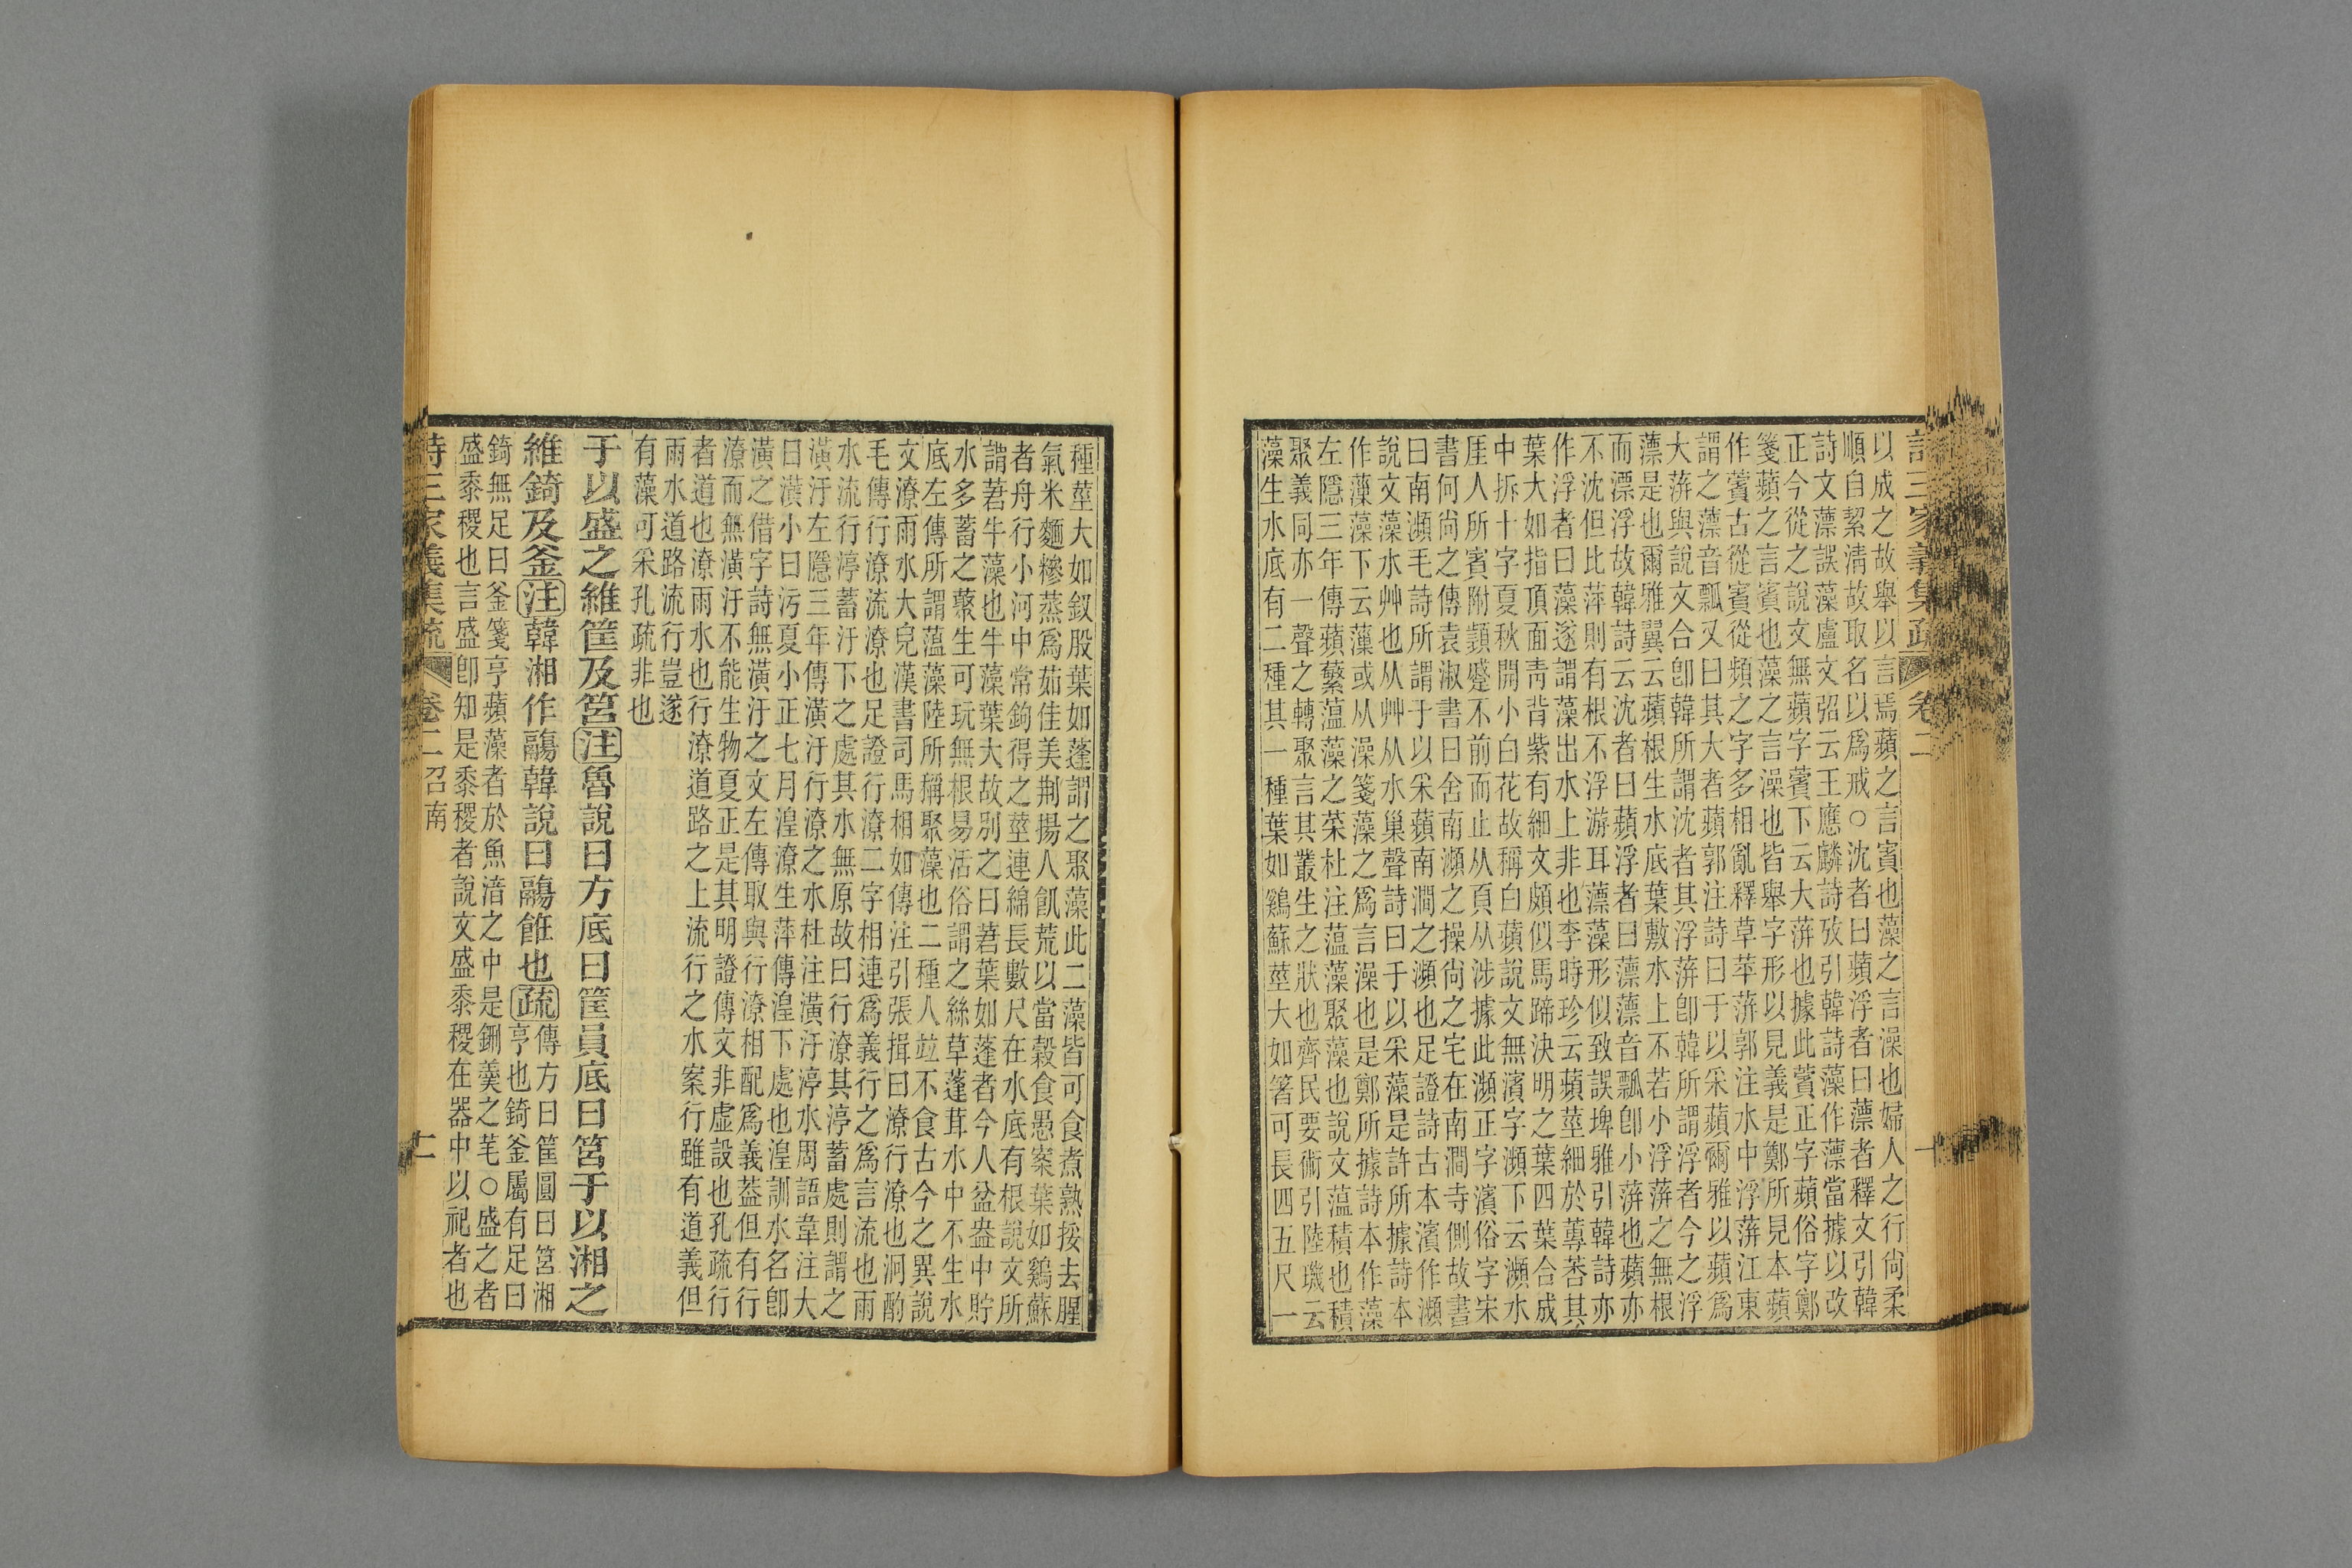 詩三家義集疏 卷二
以成之故舉以言焉蘋之言賓也藻之言澡也婦人之行尚柔
順自絜清故取名以爲戒○沈者曰蘋浮者曰薸者釋文引韓
詩文薸誤藻盧文弨云王應麟詩攷引韓詩藻作薸當據以改
正今從之說文無蘋字薲下云大蓱也據此薲正字蘋俗字鄭
箋蘋之言賓也藻之言澡也皆舉字形以見義是鄭所見本蘋
作薲古從賓從頻之字多相亂釋草苹蓱郭注水中浮蓱江東
謂之薸音瓢又曰其大者蘋郭注詩曰于以采蘋爾雅以蘋爲
大蓱與說文合卽韓所謂沈者其浮蓱卽韓所謂浮者今之浮
薸是也爾雅翼云蘋根生水底葉敷水上不若小浮蓱之無根
而漂浮故韓詩云沈者曰蘋浮者曰薸薸音瓢卽小蓱也蘋亦
不沈但比萍則有根不浮游耳薸藻形似致誤埤雅引韓詩亦
作浮者曰藻遂謂藻出水上非也李時珍云蘋莖細於蓴莕其
葉大如指頂面青背紫有細文頗似馬蹄決明之葉四葉合成
中拆十字夏秋開小白花故稱白蘋說文無濱字瀕下云瀕水
厓人所賓附顰蹙不前而止从頁从涉據此瀕正字濱俗字宋
書何尚之傳袁淑書曰舍南瀕之操尚之宅在南澗寺側故書
曰南瀕毛詩所謂于以采蘋南澗之瀕也足證詩古本濱作瀕
說文藻水艸也从艸从水巢聲詩曰于以采藻是許所據詩本
作薻藻下云薻或从澡箋藻之爲言澡也是鄭所據詩本作藻
左隱三年傳蘋蘩薀藻之菜杜注薀藻聚藻也說文薀積也積
聚義同亦一聲之轉聚言其叢生之狀也齊民要術引陸璣云
藻生水底有二種其一種葉如鷄蘇莖大如箸可長四五尺一
種莖大如釵股葉如蓬謂之聚藻此二藻皆可食煮熟挼去腥
氣米麵糝蒸爲茹佳美荆揚人飢荒以當穀食愚案葉如鷄蘇
者舟行小河中常鉤得之莖連綿長數尺在水底有根說文所
謂莙牛藻也牛藻葉大故別之曰莙葉如蓬者今人盆盎中貯
水多蓄之藂生可玩無根易活俗謂之絲草蓬茸水中不生水
底左傳所謂薀藻陸所稱聚藻也二種人竝不食古今之異說
文潦雨水大皃漢書司馬相如傳注引張揖曰潦行潦也泂酌
毛傳行潦流潦也足證行潦二字相連爲義行之爲言流也雨
水流行渟蓄汙下之處其水無原故曰行潦其渟蓄處則謂之
潢汙左隱三年傳潢汙行潦之水杜注潢汙渟水周語韋注大
曰潢小曰污夏小正七月湟潦生萍傳湟下處也湟訓水名卽
潢之借字詩無潢汙之文左傳取與行潦相配爲義葢但有行
潦而無潢汙不能生物夏正是其明證傳文非虛設也孔疏行
者道也潦雨水也行潦道路之上流行之水案行雖有道義但
雨水道路流行豈遂
有藻可采孔疏非也
于以盛之維筐及筥注魯說曰方底曰筐員底曰筥于以湘之
維錡及釜注韓湘作鬺韓說曰鬺飪也疏傳方曰筐圓曰筥湘
亨也錡釜屬有足曰
錡無足曰釜箋亨蘋藻者於魚湆之中是鉶羹之芼○盛之者
盛黍稷也言盛卽知是黍稷者說文盛黍稷在器中以祀者也
詩三家義集疏 卷二召南 十一